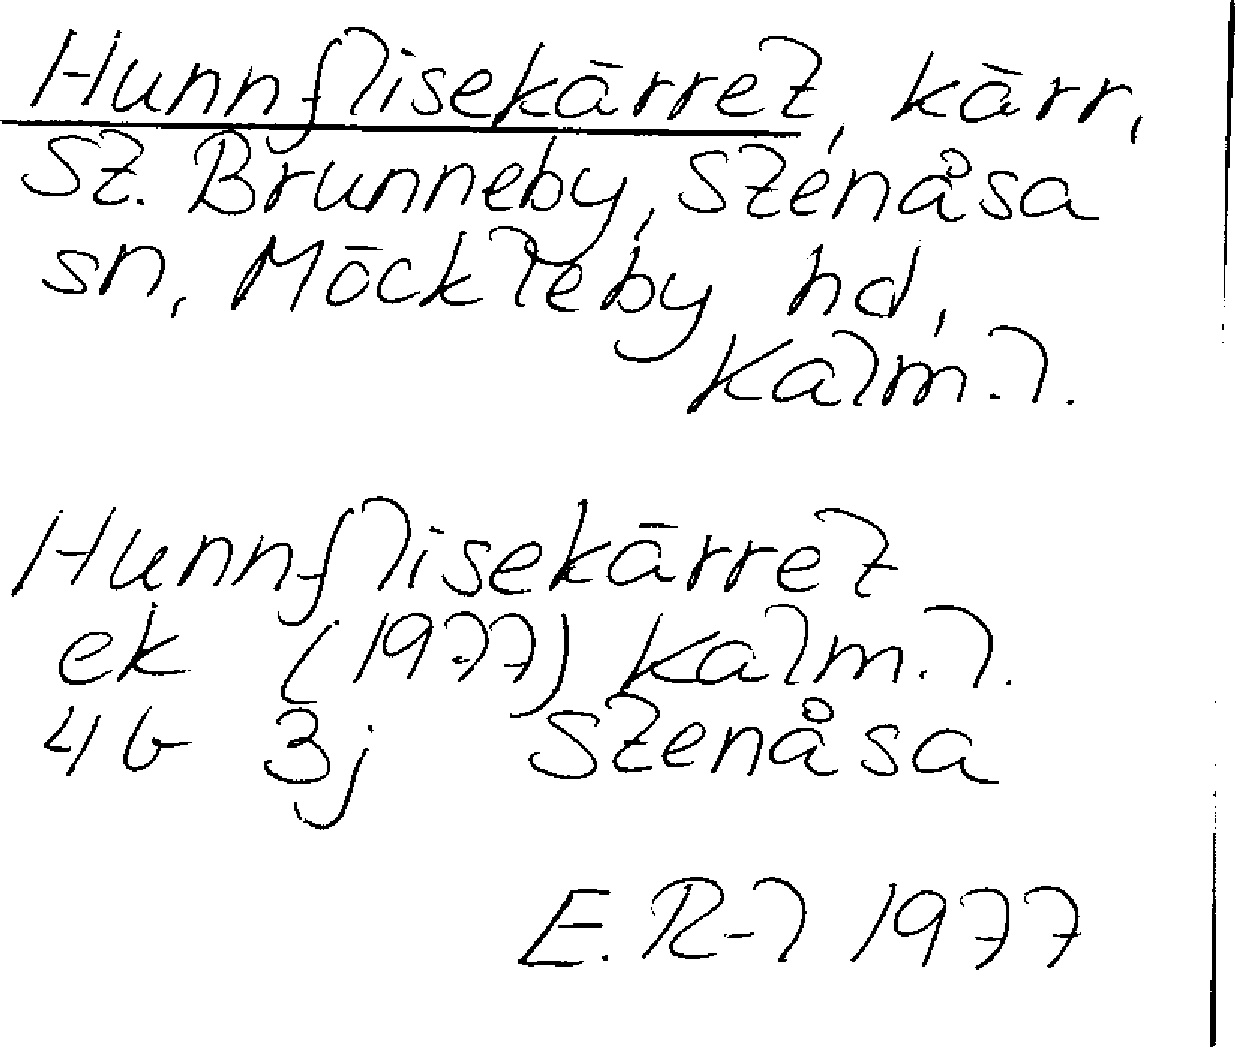 Hunnflisekärret, kärr,
St. Brunneby, Stenåsa
sn, Möckleby hd,
Kalm. l.
Hunnflisekärret
ek (1977) Kalm. l.
4G 3j Stenåsa
E. R-l 1977